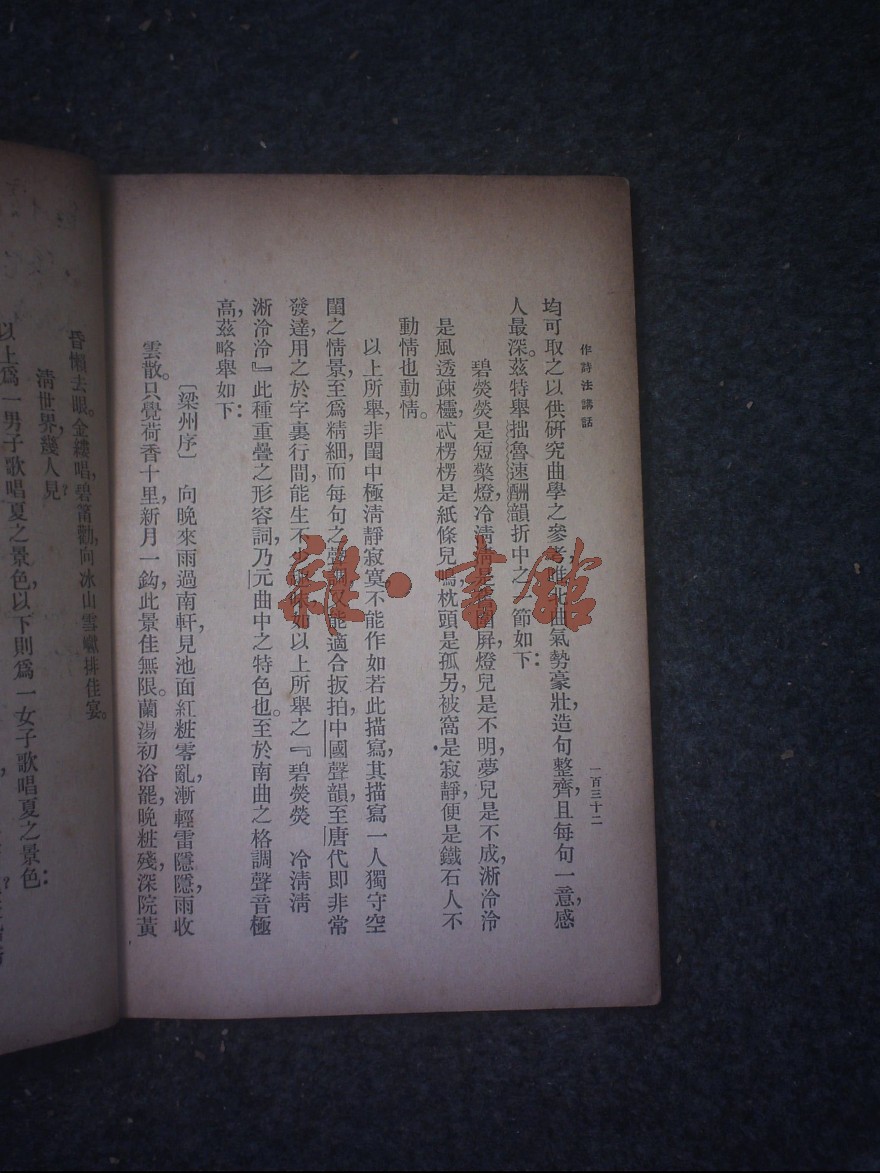 作詩法講話
一百三十二
均可取之以供研究曲學之參考。唯此曲氣勢豪壯，造句整齊，且每句一意，感
人最深。茲特舉拙魯速酬韻折中之一節如下：
碧熒熒是短檠燈，冷清清是 圍屏，燈兒是不明，夢兒是不成，淅泠泠
是風透疎櫺，忒楞楞是紙條兒鳴，枕頭是孤另，被窩是寂靜，便是鐵石人不
動情也動情。
以上所舉，非閨中極淸靜寂寞，不能作如若此描寫，其描寫一人獨守空
閨之情景，至爲精細，而每句之聲調，又能適合扳拍，中國聲韻，至唐代即非常
發達，用之於字裏行間，能生不少 味，如以上所舉之『碧熒熒 冷清清
淅泠泠』此種重疊之形容詞，乃元曲中之特色也。至於南曲之格調聲音極
高，茲略舉如下：
〔梁州序〕 向晚來雨過南軒，見池面紅粧零亂，漸輕雷隱隱，雨收
雲散。只覺荷香十里，新月一鈎，此景佳無限。蘭湯初浴罷，晚粧殘，深院黃
昏懶去眼。金縷唱，碧筩勸，向冰山雪巘排佳宴。
清世界，幾人見？
以上爲一男子歌唱夏之景色，以下則爲一女子歌唱夏之景色：
雜·書館